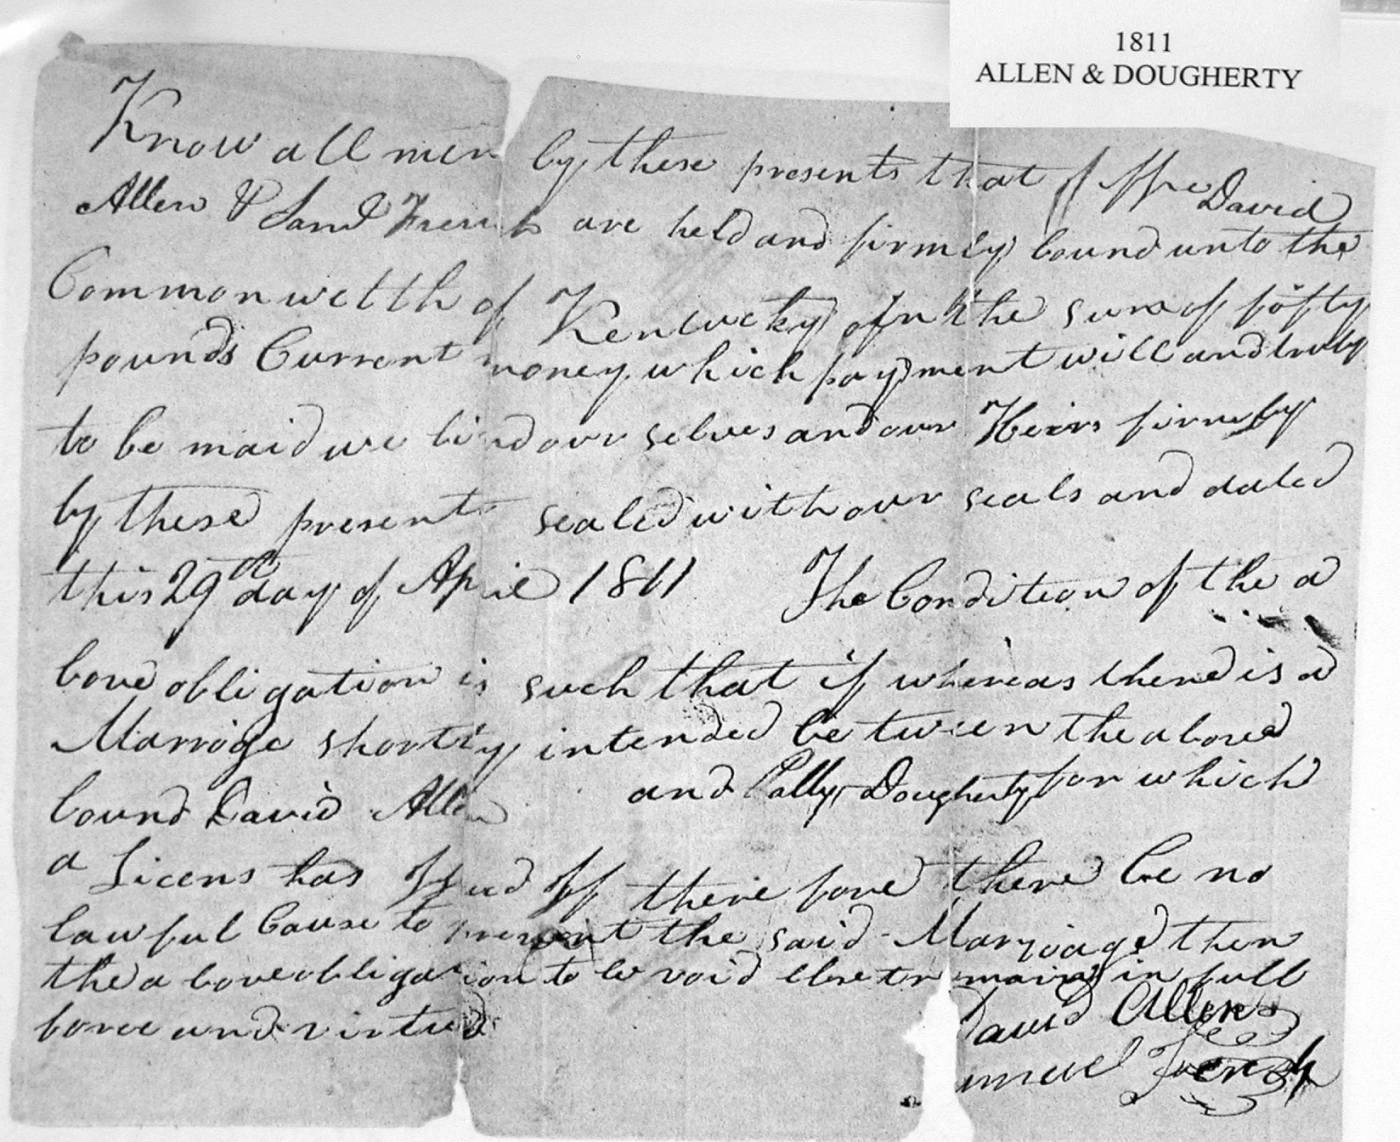 1811
ALLEN & DOUGHERTY
Know all men by these presents that we David
Allen & Saml French are held and firmly bound unto the
Commonwelth of Kentucky in the sum of fifty
pounds Current money which payment will and truly
to be maid we bind our selves and our Heirs firmly
by these present sealed with our seals and dated
this 29th day of April 1811 The Condition of the a
bove obligation is such that if whereas there is a
Marriage shortly intended between the above
bound David Allen and Polly Dougherty for which
a Licens has Issued If there fore there be no
lawful Cause to prevent the said Marriage then
the above obligation to be void else to remain in full
force and virtue
David Allen
amuel French